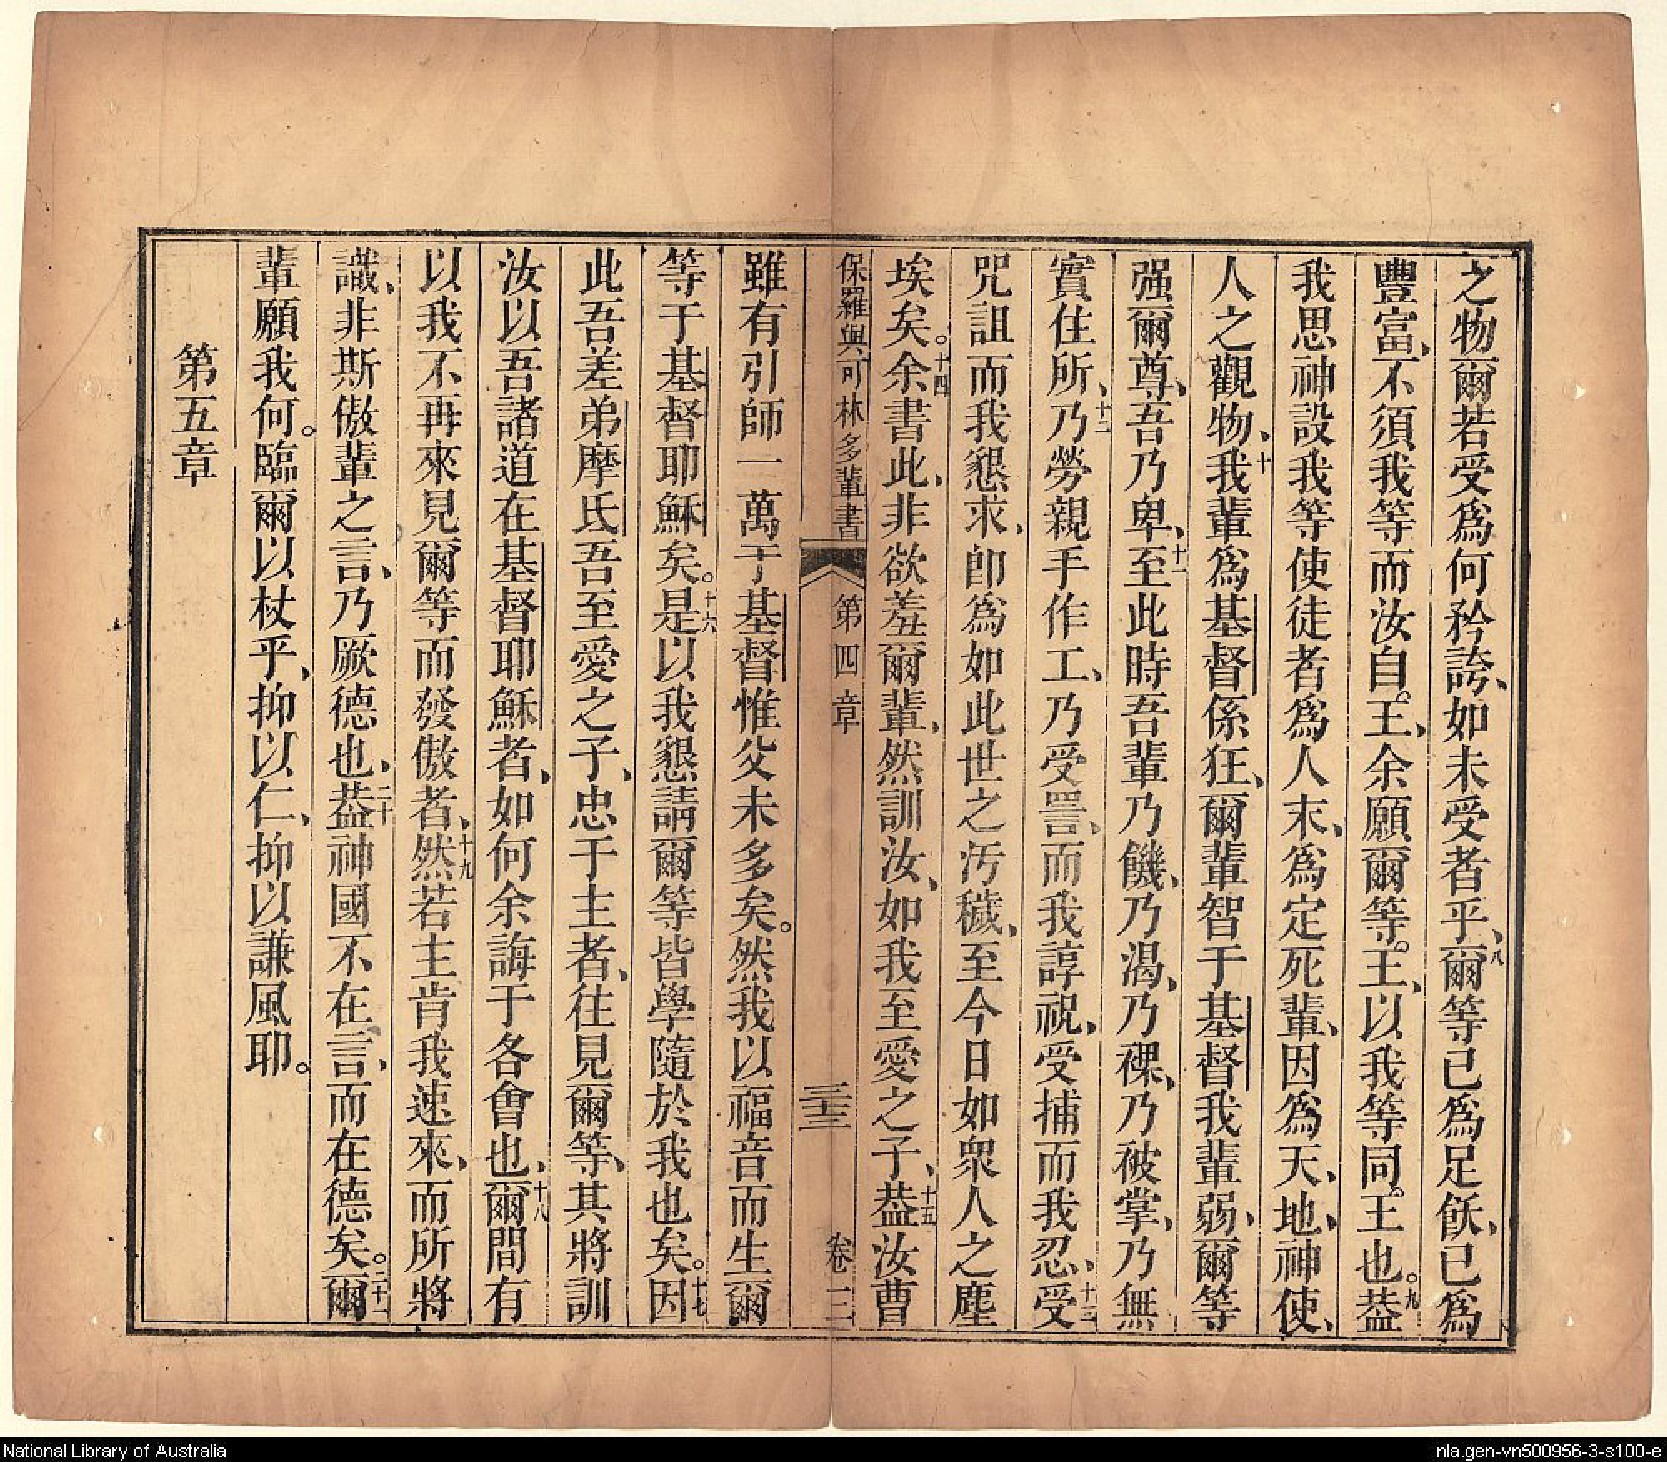 之物爾若受爲何矜誇、如未受者乎、八爾等已爲足飫、已爲
豐富、不須我等而汝自。王、余願爾等。王、以我等同。王也。九葢
我思神設我等使徒者爲人末、爲定死輩、因爲天、地、神使、
人之觀物、十我輩爲基督係狂、爾輩智于基督、我輩弱、爾等
强爾尊、吾乃卑、十一至此時吾輩乃饑、乃渴、乃裸、乃被掌、乃無
實住所、十二乃勞親手作工、乃受詈、而我諄祝、受捕而我忍、十三受
咒詛而我懇求、卽爲如此世之汚穢、至今日如衆人之塵
埃矣。十四余書此、非欲羞爾輩、然訓汝、如我至愛之子、十五葢汝曹
保羅與可林多輩書 第四章 三十三 卷三
雖有引師一萬于基督惟父未多矣。然我以福音而生爾
等于基督耶穌矣。十六是以我懇請爾等皆學隨於我也矣。十七因
此吾差弟摩氏吾至愛之子、忠于主者、往見爾等、其將訓
汝以吾諸道在基督耶穌者、如何余誨于各會也、十八爾間有
以我不再來見爾等而發傲者、十九然若主肯我速來、而所將
識、非斯傲輩之言、乃厥德也、二十葢神國不在言、而在德矣。二十一爾
輩願我何。臨爾以杖乎、抑以仁、抑以謙風耶。
第五章
National Library of Australia
nla.gen-vn500956-3-s100-e